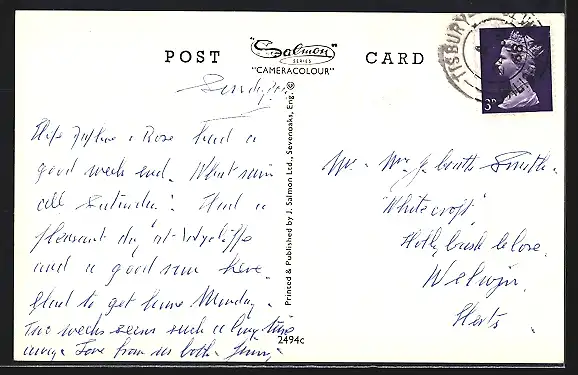 POST "Salmon" SERIES CARD
"CAMERACOLOUR"
TISBURY
Sunday
& Rose had a
good week end. What rain
all Saturday! Had a
pleasant day at
and a good run here.
Glad to get home Monday.
Two weeks seems such a long time
away. Love from us both.
Printed & Published by J. Salmon Ltd., Sevenoaks, Eng. ©
2494c
Mr. Mrs J. Smith.
"Whitecroft"
Hollybush Close.
Welwyn.
Herts.